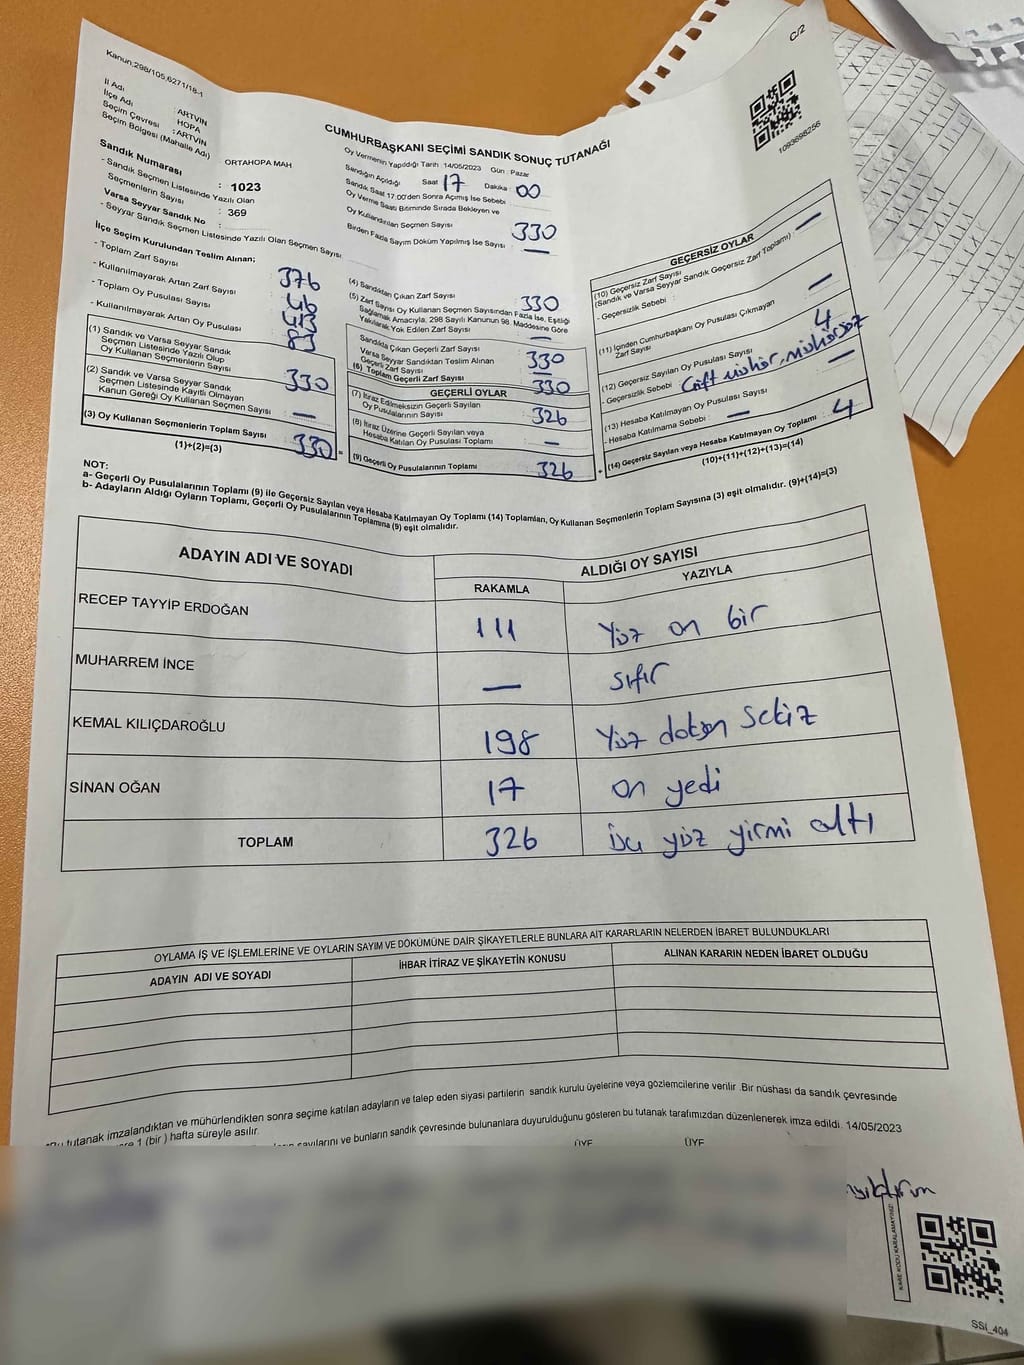 C/2
Kanun.298/105,6271/18-1
1093698256
İl Adı : ARTVİN
İlçe Adı : HOPA
Seçim Çevresi : ARTVİN
Seçim Bölgesi (Mahalle Adı) ORTAHOPA MAH
Sandık Numarası : 1023
- Sandık Seçmen Listesinde Yazılı Olan Seçmenlerin Sayısı : 369
Varsa Seyyar Sandık No :
- Seyyar Sandık Seçmen Listesinde Yazılı Olan Seçmen Sayısı :
CUMHURBAŞKANI SEÇİMİ SANDIK SONUÇ TUTANAĞI
Oy Vermenin Yapıldığı Tarih :14/05/2023 Gün : Pazar
Sandığın Açıldığı Saat 17 Dakika : 00
Sandık Saat 17.00'den Sonra Açımış İse Sebebi :
Oy Verme Saati Bitiminde Sırada Bekleyen ve
Oy Kullandırılan Seçmen Sayısı 330
Birden Fazla Sayım Döküm Yapılmış İse Sayısı —
İlçe Seçim Kurulundan Teslim Alınan;
- Toplam Zarf Sayısı 376
- Kullanılmayarak Artan Zarf Sayısı 46
- Toplam Oy Pusulası Sayısı
- Kullanılmayarak Artan Oy Pusulası
(1) Sandık ve Varsa Seyyar Sandık
Seçmen Listesinde Yazılı Olup
Oy Kullanan Seçmenlerin Sayısı 330
(2) Sandık ve Varsa Seyyar Sandık
Seçmen Listesinde Kayıtlı Olmayan
Kanun Gereği Oy Kullanan Seçmen Sayısı —
(3) Oy Kullanan Seçmenlerin Toplam Sayısı 330
(1)+(2)=(3)
(4) Sandıktan Çıkan Zarf Sayısı 330
(5) Zarf Sayısı Oy Kullanan Seçmen Sayısından Fazla İse, Eşitliği
Sağlamak Amacıyla, 298 Sayılı Kanunun 98. Maddesine Göre
Yakılarak Yok Edilen Zarf Sayısı —
Sandıkta Çıkan Geçerli Zarf Sayısı 330
Varsa Seyyar Sandıktan Teslim Alınan
Geçerli Zarf Sayısı —
(6) Toplam Geçerli Zarf Sayısı 330
GEÇERLİ OYLAR
(7) İtiraz Edilmeksizin Geçerli Sayılan
Oy Pusulalarının Sayısı 326
(8) İtiraz Üzerine Geçerli Sayılan veya
Hesaba Katılan Oy Pusulası Toplamı —
(9) Geçerli Oy Pusulalarının Toplamı 326
GEÇERSİZ OYLAR
(10) Geçersiz Zarf Sayısı
(Sandık ve Varsa Seyyar Sandık Geçersiz Zarf Toplamı) —
- Geçersizlik Sebebi :
(11) İçinden Cumhurbaşkanı Oy Pusulası Çıkmayan
Zarf Sayısı —
(12) Geçersiz Sayılan Oy Pusulası Sayısı 4
- Geçersizlik Sebebi : Çift mühür, mühürsüz
(13) Hesaba Katılmayan Oy Pusulası Sayısı —
- Hesaba Katılmama Sebebi : —
(14) Geçersiz Sayılan veya Hesaba Katılmayan Oy Toplamı 4
(10)+(11)+(12)+(13)=(14)
NOT:
a- Geçerli Oy Pusulalarının Toplamı (9) ile Geçersiz Sayılan veya Hesaba Katılmayan Oy Toplamı (14) Toplamları, Oy Kullanan Seçmenlerin Toplam Sayısına (3) eşit olmalıdır. (9)+(14)=(3)
b- Adayların Aldığı Oyların Toplamı, Geçerli Oy Pusulalarının Toplamına (9) eşit olmalıdır.
ADAYIN ADI VE SOYADI ALDIĞI OY SAYISI
RAKAMLA YAZIYLA
RECEP TAYYİP ERDOĞAN 111 Yüz on bir
MUHARREM İNCE — sıfır
KEMAL KILIÇDAROĞLU 198 Yüz doksan sekiz
SİNAN OĞAN 17 on yedi
TOPLAM 326 üç yüz yirmi altı
OYLAMA İŞ VE İŞLEMLERİNE VE OYLARIN SAYIM VE DÖKÜMÜNE DAİR ŞİKAYETLERLE BUNLARA AİT KARARLARIN NELERDEN İBARET BULUNDUKLARI
ADAYIN ADI VE SOYADI İHBAR İTİRAZ VE ŞİKAYETİN KONUSU ALINAN KARARIN NEDEN İBARET OLDUĞU
tutanak imzalandıktan ve mühürlendikten sonra seçime katılan adayların ve talep eden siyasi partilerin sandık kurulu üyelerine veya gözlemcilerine verilir .Bir nüshası da sandık çevresinde
1 (bir ) hafta süreyle asılır.
sayılarını ve bunların sandık çevresinde bulunanlara duyurulduğunu gösteren bu tutanak tarafımızdan düzenlenerek imza edildi. 14/05/2023
ÜYE ÜYE
KARE KODU KARALAMAYINIZ!
SSİ_404